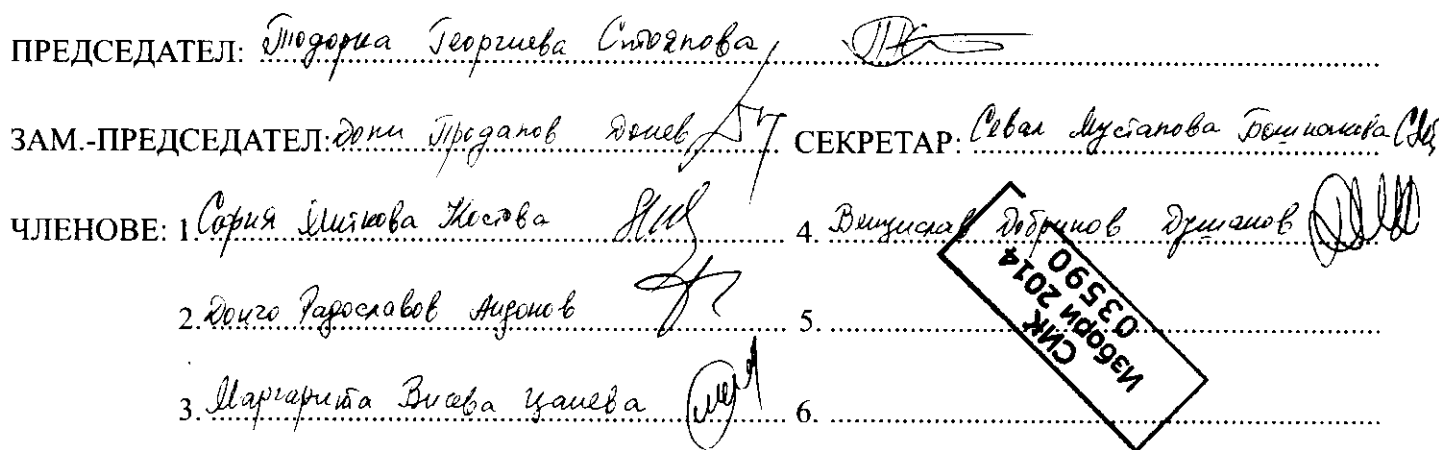 ПРЕДСЕДАТЕЛ: Тодорка Георгиева Стоянова
ЗАМ.-ПРЕДСЕДАТЕЛ: Дони Проданов Донев СЕКРЕТАР: Севал Мустапова
ЧЛЕНОВЕ: 1. София Миткова Костова 4. Венцислав Добринов Душанов
2. Донго Радославов Андонов 5.
3. Маргарита Висева Цанева 6.
СИК
Избори 2014
03590